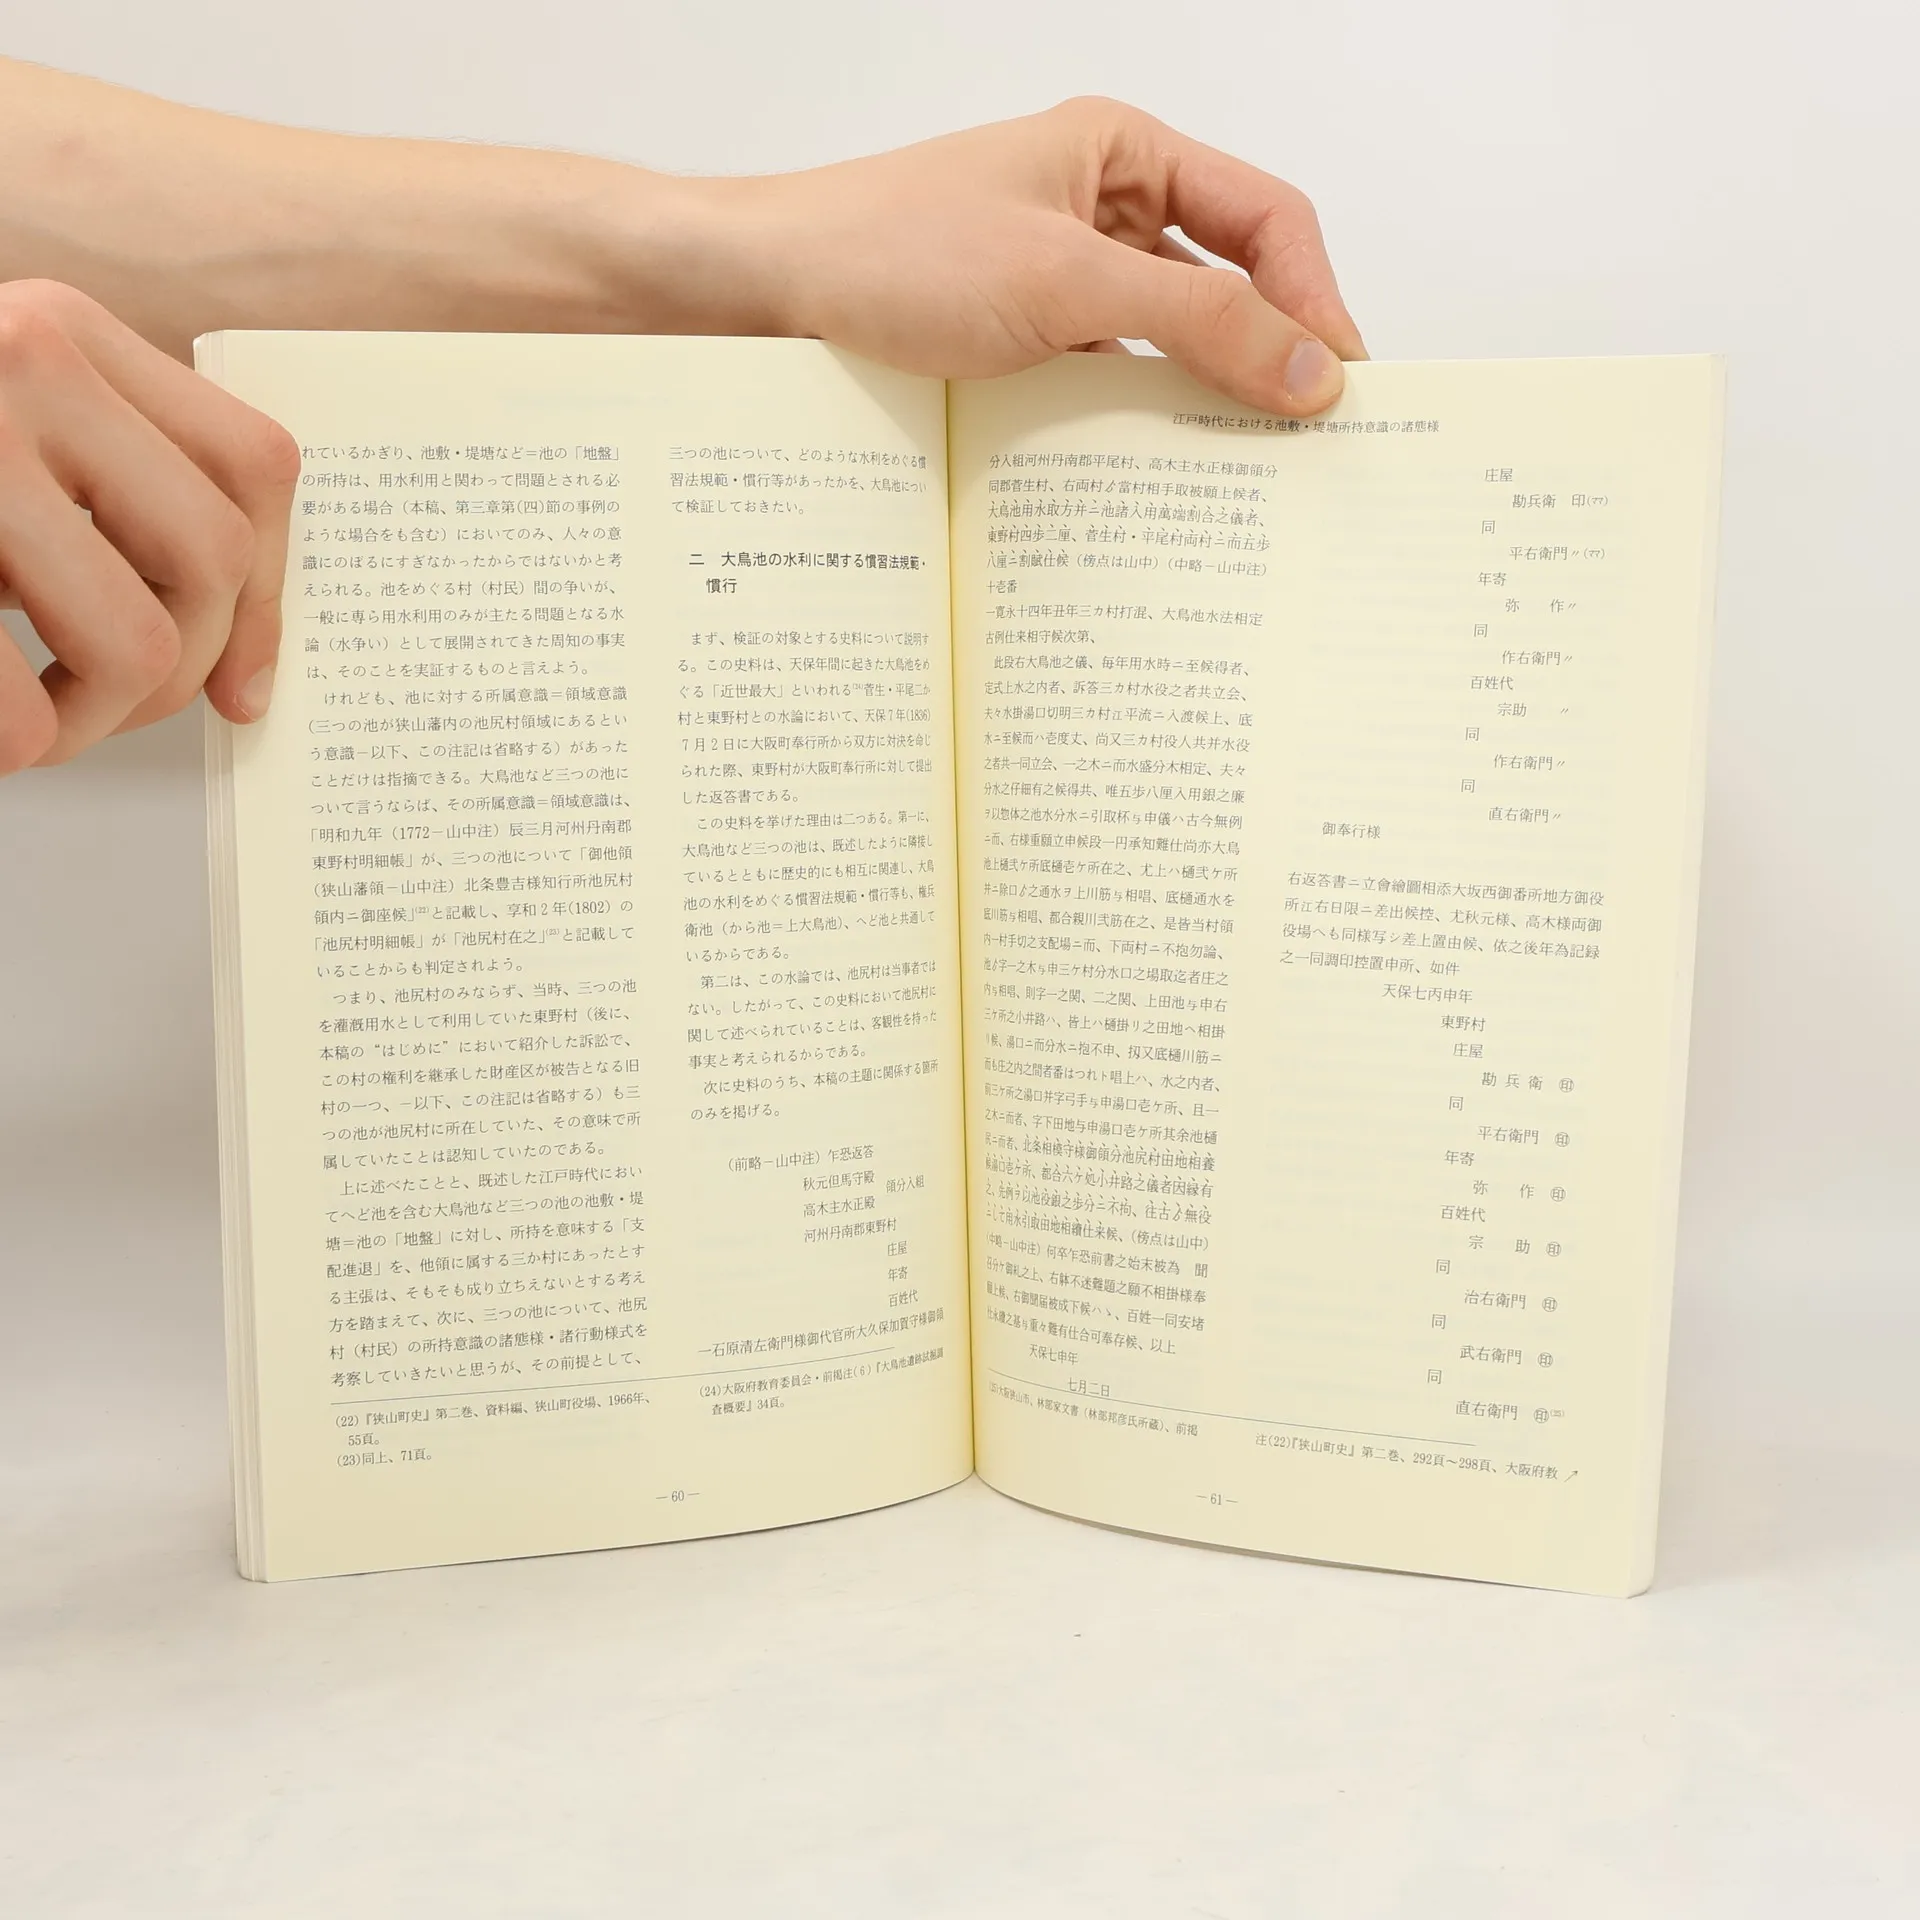 れているかぎり、池敷・堤塘など＝池の「地盤」
の所持は、用水利用と関わって問題とされる必
要がある場合（本稿、第三章第(四)節の事例の
ような場合をも含む）においてのみ、人々の意
識にのぼるにすぎなかったからではないかと考
えられる。池をめぐる村（村民）間の争いが、
一般に専ら用水利用のみが主たる問題となる水
論（水争い）として展開されてきた周知の事実
は、そのことを実証するものと言えよう。
けれども、池に対する所属意識＝領域意識
（三つの池が狭山藩内の池尻村領域にあるとい
う意識－以下、この注記は省略する）があった
ことだけは指摘できる。大鳥池など三つの池に
ついて言うならば、その所属意識＝領域意識は、
「明和九年（1772－山中注）辰三月河州丹南郡
東野村明細帳」が、三つの池について「御他領
（狭山藩領－山中注）北条豊吉様知行所池尻村
領内ニ御座候」(22)と記載し、享和２年(1802）の
「池尻村明細帳」が「池尻村在之」(23)と記載して
いることからも判定されよう。
つまり、池尻村のみならず、当時、三つの池
を灌漑用水として利用していた東野村（後に、
本稿の“はじめに”において紹介した訴訟で、
この村の権利を継承した財産区が被告となる旧
村の一つ、－以下、この注記は省略する）も三
つの池が池尻村に所在していた、その意味で所
属していたことは認知していたのである。
上に述べたことと、既述した江戸時代におい
てへど池を含む大鳥池など三つの池の池敷・堤
塘＝池の「地盤」に対し、所持を意味する「支
配進退」を、他領に属する三か村にあったとす
る主張は、そもそも成り立ちえないとする考え
方を踏まえて、次に、三つの池について、池尻
村（村民）の所持意識の諸態様・諸行動様式を
考察していきたいと思うが、その前提として、
(22)『狭山町史』第二巻、資料編、狭山町役場、1966年、
55頁。
(23)同上、71頁。
三つの池について、どのような水利をめぐる慣
習法規範・慣行等があったかを、大鳥池につい
て検証しておきたい。
二　大鳥池の水利に関する慣習法規範・
慣行
まず、検証の対象とする史料について説明す
る。この史料は、天保年間に起きた大鳥池をめ
ぐる「近世最大」といわれる(24)菅生・平尾二か
村と東野村との水論において、天保７年(1836)
７月２日に大阪町奉行所から双方に対決を命じ
られた際、東野村が大阪町奉行所に対して提出
した返答書である。
この史料を挙げた理由は二つある。第一に、
大鳥池など三つの池は、既述したように隣接し
ているとともに歴史的にも相互に関連し、大鳥
池の水利をめぐる慣習法規範・慣行等も、権兵
衛池（から池＝上大鳥池）、へど池と共通して
いるからである。
第二は、この水論では、池尻村は当事者では
ない。したがって、この史料において池尻村に
関して述べられていることは、客観性を持った
事実と考えられるからである。
次に史料のうち、本稿の主題に関係する箇所
のみを掲げる。
（前略－山中注）乍恐返答
秋元但馬守殿
領分入組
高木主水正殿
河州丹南郡東野村
庄屋
年寄
百姓代
一石原清左衛門様御代官所大久保加賀守様御領
(24)大阪府教育委員会・前掲注(６)『大鳥池遺跡試掘調
査概要』34頁。
― 60 ―
江戸時代における池敷・堤塘所持意識の諸態様
分入組河州丹南郡平尾村、高木主水正様御領分
同郡菅生村、右両村ゟ當村相手取被願上候者、
大鳥池用水取方并ニ池諸入用萬端割合之儀者、
東野村四歩二厘、菅生村・平尾村両村ニ而五歩
八厘ニ割賦仕候（傍点は山中）（中略－山中注）
十壱番
一寛永十四年丑年三カ村打混、大鳥池水法相定
古例仕来相守候次第、
此段右大鳥池之儀、毎年用水時ニ至候得者、
定式上水之内者、訴答三カ村水役之者共立会、
夫々水掛湯口切明三カ村江平流ニ入渡候上、底
水ニ至候而ハ壱度丈、尚又三カ村役人共并水役
之者共一同立会、一之木ニ而水盛分木相定、夫々
分水之仔細有之候得共、唯五歩八厘入用銀之廉
ヲ以惣体之池水分水ニ引取杯与申儀ハ古今無例
ニ而、右様重願立申候段一円承知難仕尚亦大鳥
池上樋弐ケ所底樋壱ケ所在之、尤上ハ樋弐ケ所
并ニ除口ゟ之通水ヲ上川筋与相唱、底樋通水を
底川筋与相唱、都合親川弐筋在之、是皆当村領
内一村手切之支配場ニ而、下両村ニ不抱勿論、
池ゟ字一之木与申三ケ村分水口之場取迄者庄之
内与相唱、則字一之関、二之関、上田池与申右
三ケ所之小井路ハ、皆上ハ樋掛リ之田地へ相掛
リ候、湯口ニ而分水ニ抱不申、扨又底樋川筋ニ
而も庄之内之間者番はつれト唱上ハ、水之内者、
前三ケ所之湯口并字弓手与申湯口壱ケ所、且一
之木ニ而者、字下田地与申湯口壱ケ所其余池樋
尻ニ而者、北条相模守様御領分池尻村田地相養
候湯口壱ケ所、都合六ケ処小井路之儀者因縁有
之、先例ヲ以池役銀之歩分ニ不拘、往古ゟ無役
ニして用水引取田地相續仕来候、（傍点は山中）
（中略－山中注）何卒乍恐前書之始末被為　聞
召分ケ御札之上、右躰不迷難題之願不相掛様奉
願上候、右御聞届被成下候ハヽ、百姓一同安堵
仕永續之基与重々難有仕合可奉存候、以上
天保七申年
七月二日
(25)大阪狭山市、林部家文書（林部邦彦氏所蔵）、前掲
庄屋
勘兵衛　印(ママ)
同
平右衛門〃(ママ)
年寄
弥　作〃
同
作右衛門〃
百姓代
宗助　〃
同
作右衛門〃
同
直右衛門〃
御奉行様
右返答書ニ立會繪圖相添大坂西御番所地方御役
所江右日限ニ差出候控、尤秋元様、高木様両御
役場へも同様写シ差上置由候、依之後年為記録
之一同調印控置申所、如件
天保七丙申年
東野村
庄屋
勘兵衛　㊞
同
平右衛門　㊞
年寄
弥　作　㊞
百姓代
宗　助　㊞
同
治右衛門　㊞
同
武右衛門　㊞
同
直右衛門　㊞(25)
注(22)『狭山町史』第二巻、292頁～298頁、大阪府教↗
― 61 ―